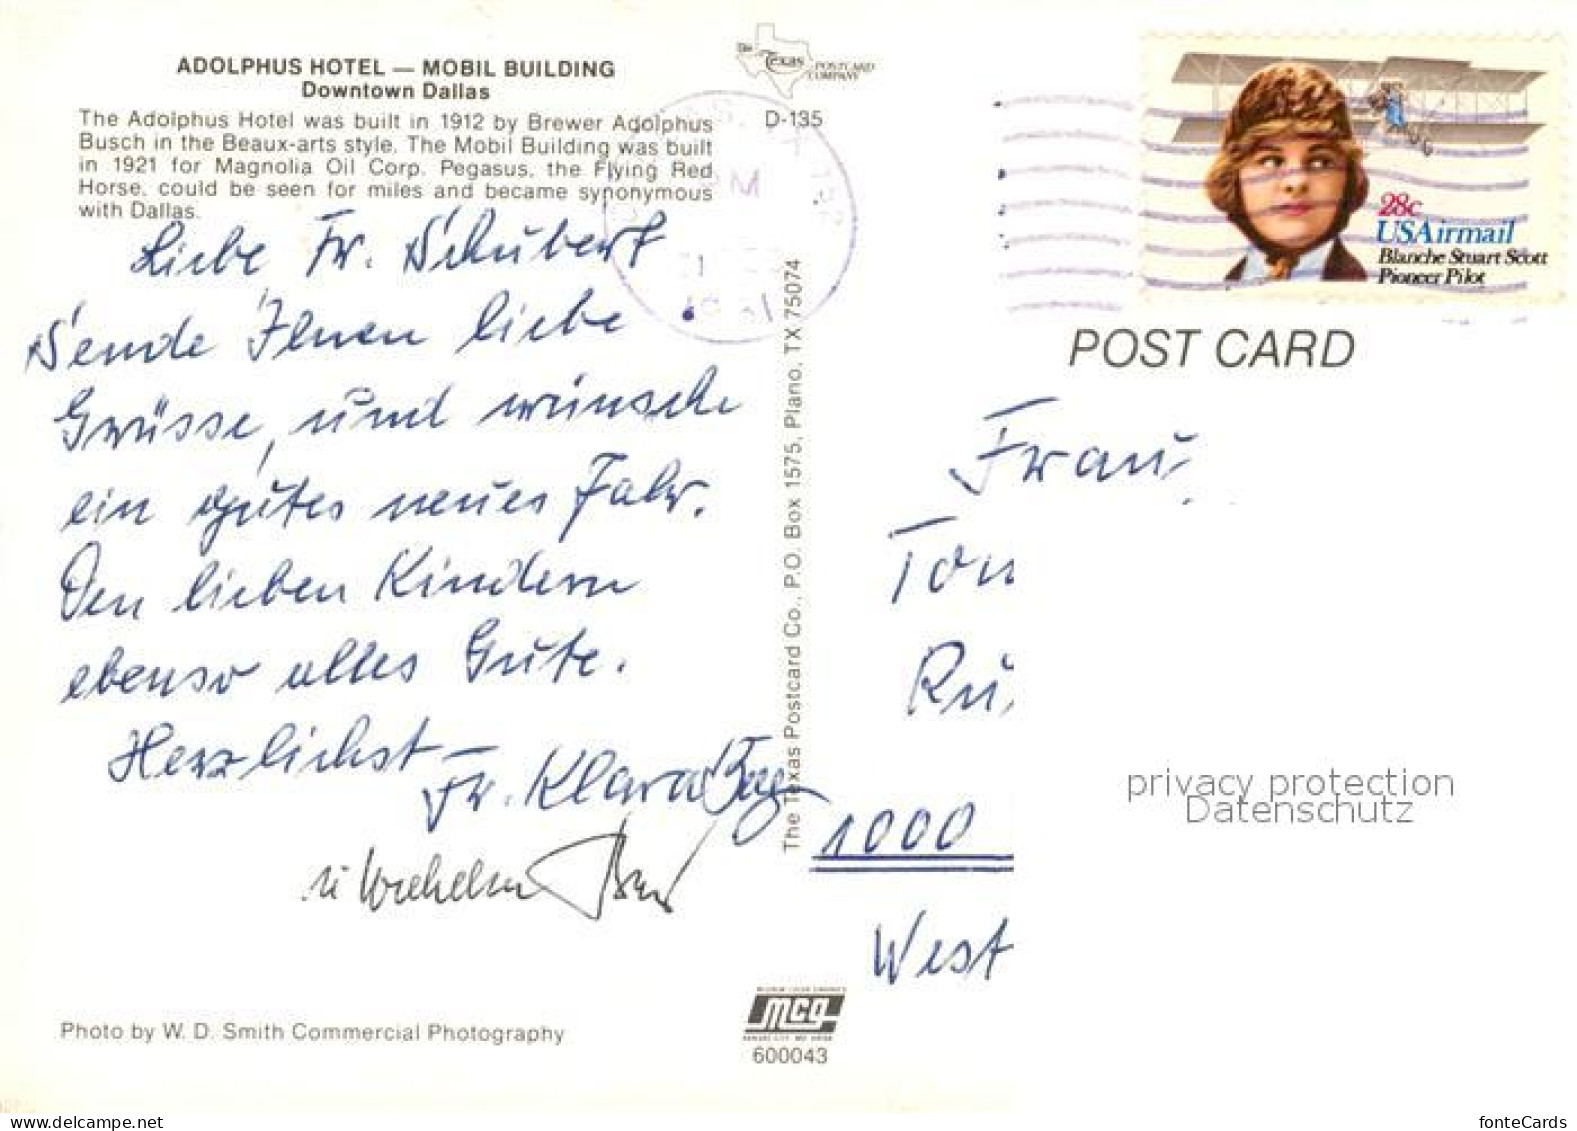 ADOLPHUS HOTEL — MOBIL BUILDING
Downtown Dallas
The Adolphus Hotel was built in 1912 by Brewer Adolphus
Busch in the Beaux-arts style. The Mobil Building was built
in 1921 for Magnolia Oil Corp. Pegasus, the Flying Red
Horse, could be seen for miles and became synonymous
with Dallas.
The Texas POSTCARD COMPANY
D-135
Liebe Fr. Schubert
Sende Ihnen liebe
Grüsse, und wünsche
ein gutes neues Jahr.
Den lieben Kindern
ebenso alles Gute.
Herzlichst —
Fr. Klara
u Wilhelm
Photo by W. D. Smith Commercial Photography
The Texas Postcard Co., P.O. Box 1575, Plano, TX 75074
mcg
600043
28c
USAirmail
Blanche Stuart Scott
Pioneer Pilot
POST CARD
Frau
1000
West
privacy protection
Datenschutz
delcampe.net
fonteCards